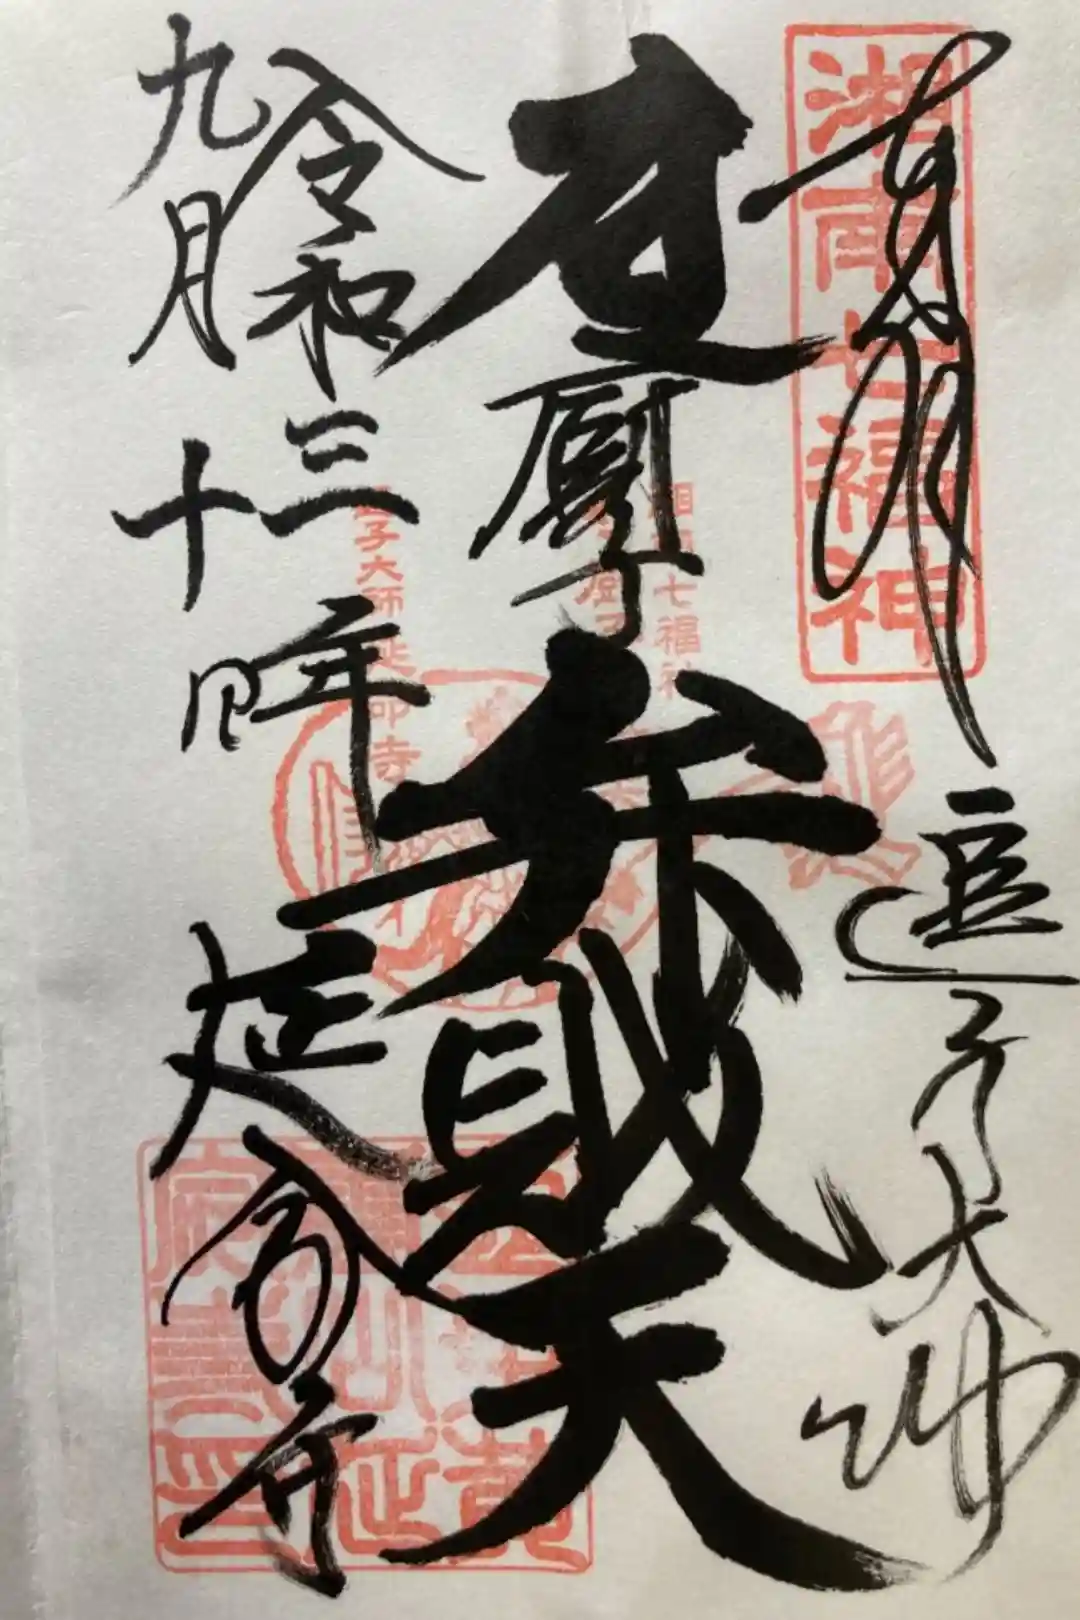 奉拝
湘南七福神
逗子大師
厨子
弁財天
湘南七福神
逗子大師延命寺
令和三年
九月十日
延命寺